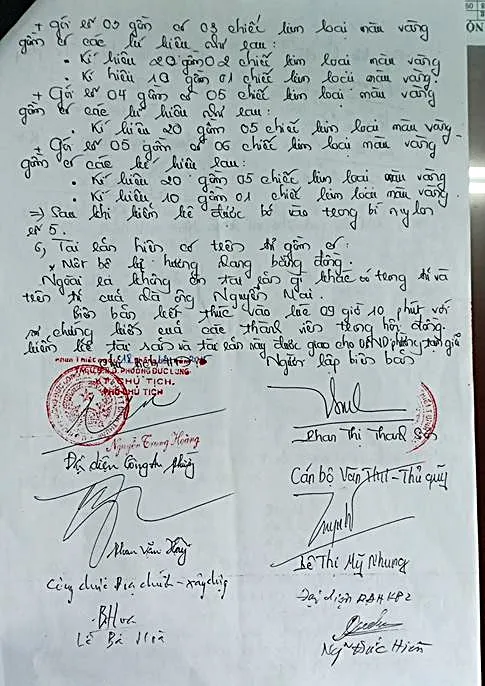 + Gói số 03 gồm có 03 chiếc kim loại màu vàng
gồm có các ký hiệu như sau:
• Kí hiệu 20 gồm 02 chiếc kim loại màu vàng
• Kí hiệu 10 gồm 01 chiếc kim loại màu vàng
+ Gói số 04 gồm có 05 chiếc kim loại màu vàng
gồm có các ký hiệu như sau:
• Kí hiệu 20 gồm 05 chiếc kim loại màu vàng
+ Gói số 05 gồm có 06 chiếc kim loại màu vàng
gồm có các kí hiệu sau:
• Kí hiệu 20 gồm 05 chiếc kim loại màu vàng
• Kí hiệu 10 gồm 01 chiếc kim loại màu vàng.
=> Sau khi kiểm kê được bỏ vào trong bì nylon
số 5.
6, Tài sản hiện có trên gồm có:
* Một bộ lư hương bằng đồng.
Ngoài ra không còn tài sản gì khác có trong và
trên của nhà ông Nguyễn Mai.
Biên bản kết thúc vào lúc 09 giờ 10 phút với
sự chứng kiến của các thành viên trong hội đồng
kiểm kê tài sản và tài sản này được giao cho UBND phường tạm giữ
Người lập biên bản
PHƯỜNG ĐỨC LONG
KT. CHỦ TỊCH
PHÓ CHỦ TỊCH
Nguyễn Trung Hoàng
Phan Thị Thanh
Đại diện Công an phường
Cán bộ Văn Thư - Thủ quỹ
Phan Văn
Lê Thị Mỹ Nhung
Công chức Địa chính - xây dựng
Đại diện KP2
Lê Bá Hoà
Ngô Đức Hiền